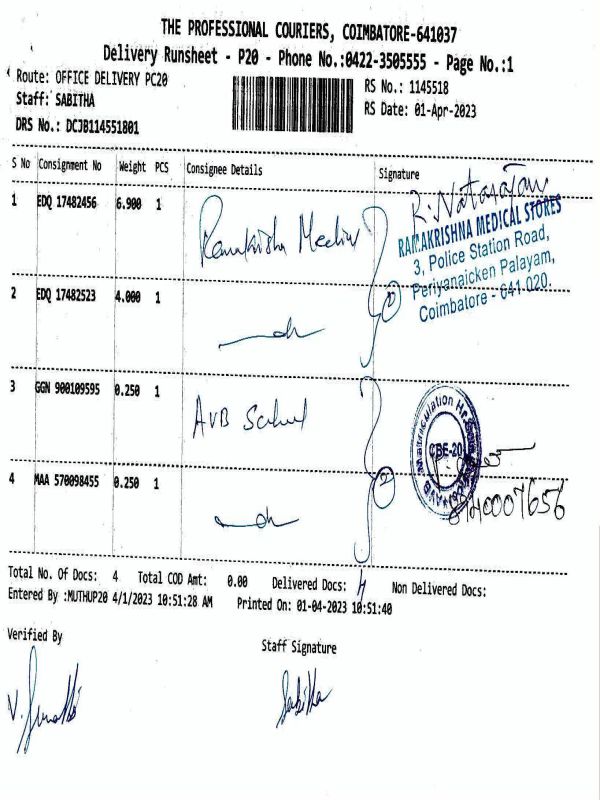 THE PROFESSIONAL COURIERS, COIMBATORE-641037
Delivery Runsheet - P20 - Phone No.:0422-3505555 - Page No.:1
Route: OFFICE DELIVERY PC20
Staff: SABITHA
DRS No.: DCJB114551801
RS No.: 1145518
RS Date: 01-Apr-2023
S No Consignment No Weight PCS Consignee Details Signature
1 EDQ 17482456 6.900 1 Ramakrishna Medical R. Natarajan
RAMAKRISHNA MEDICAL STORES
3, Police Station Road,
Periyanaicken Palayam,
Coimbatore - 641 020.
2 EDQ 17482523 4.000 1 do 2
3 GGN 900109595 0.250 1 AVB School
CBE-20
4 MAA 570098455 0.250 1 do 2
8140007656
Total No. Of Docs: 4 Total COD Amt: 0.00 Delivered Docs: 4 Non Delivered Docs:
Entered By :MUTHUP20 4/1/2023 10:51:28 AM Printed On: 01-04-2023 10:51:40
Verified By
Staff Signature
Sabitha